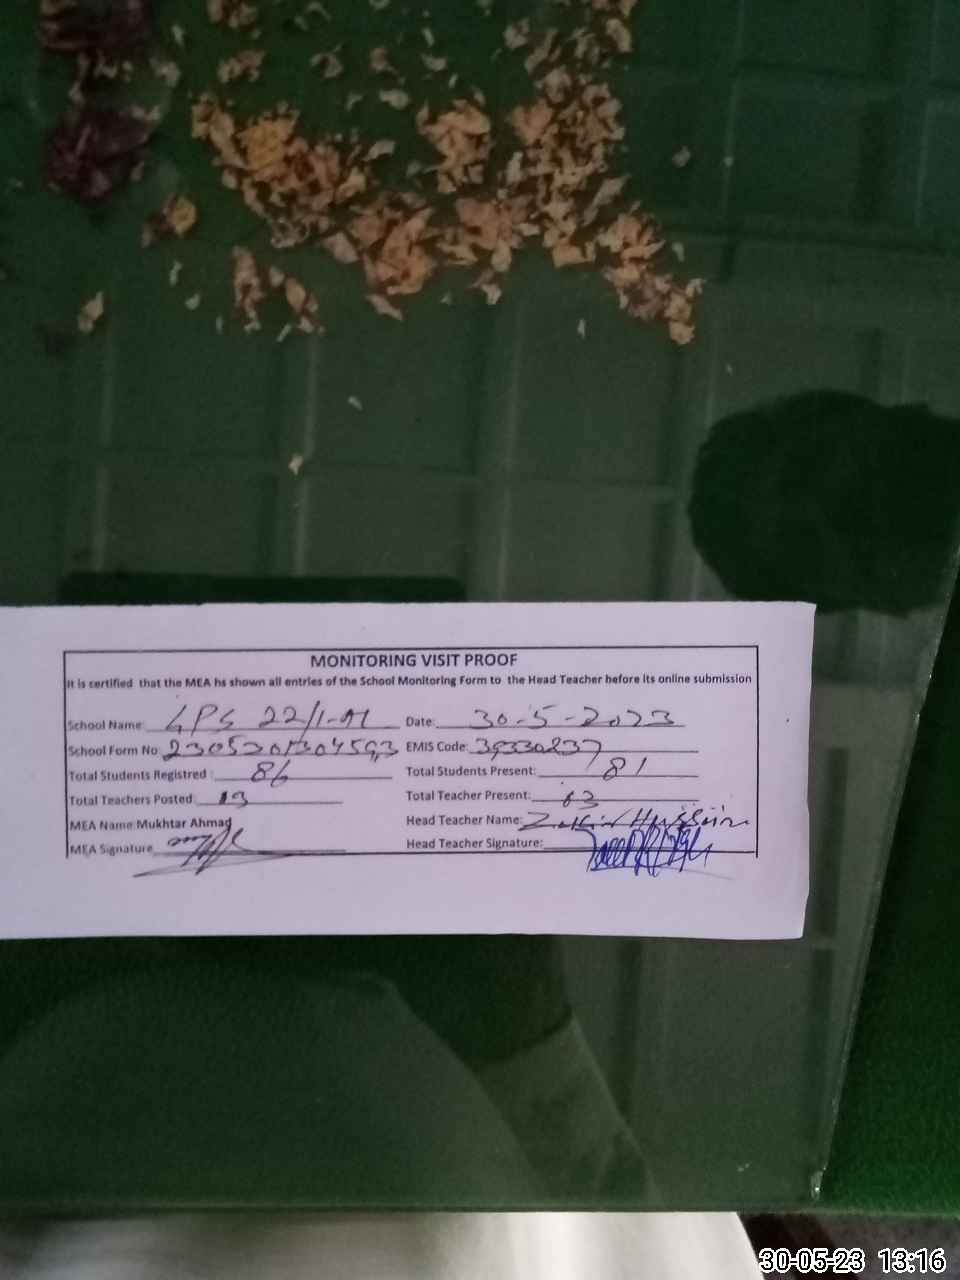 MONITORING VISIT PROOF
It is certified that the MEA hs shown all entries of the School Monitoring Form to the Head Teacher before its online submission
School Name: GPS 22/1-AL Date: 30-5-2023
School Form No: EMIS Code: 39330237
Total Students Registered : 86 Total Students Present: 81
Total Teachers Posted: 03 Total Teacher Present: 03
MEA Name: Mukhtar Ahmad Head Teacher Name: Zakir Hussain
MEA Signature Head Teacher Signature:
30-05-23 13:16